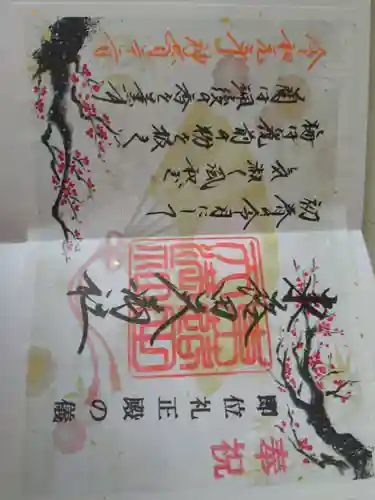 奉祝
即位礼正殿の儀
東蕗田天満社
初春の令月にして
気淑く風和ぎ
梅は鏡前の粉を披く
蘭は珮後の香を薫す
令和元年神無月二十二日